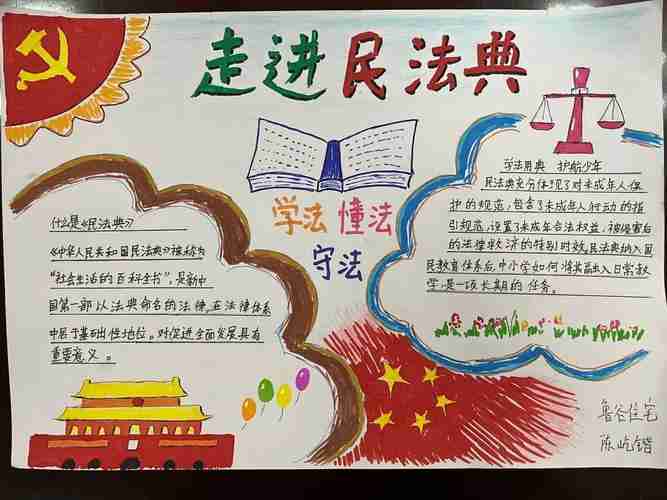 走进民法典
学法 懂法
守法
什么是《民法典》
《中华人民共和国民法典》被称为
“社会生活的百科全书”，是新中
国第一部以法典命名的法律，在法律体系
中居于基础性地位。对促进全面发展具有
重要意义。
学法用典 护航少年
民法典充分体现了对未成年人保
护的规范，包含了未成年人行动的指
引规范，设置了未成年合法权益，被侵害后
的法律救济的特别时效，民法典纳入国
民教育体系后，中小学如何将其融入日常教
学，是一项长期的任务。
鲁谷住宅
陈屹锴